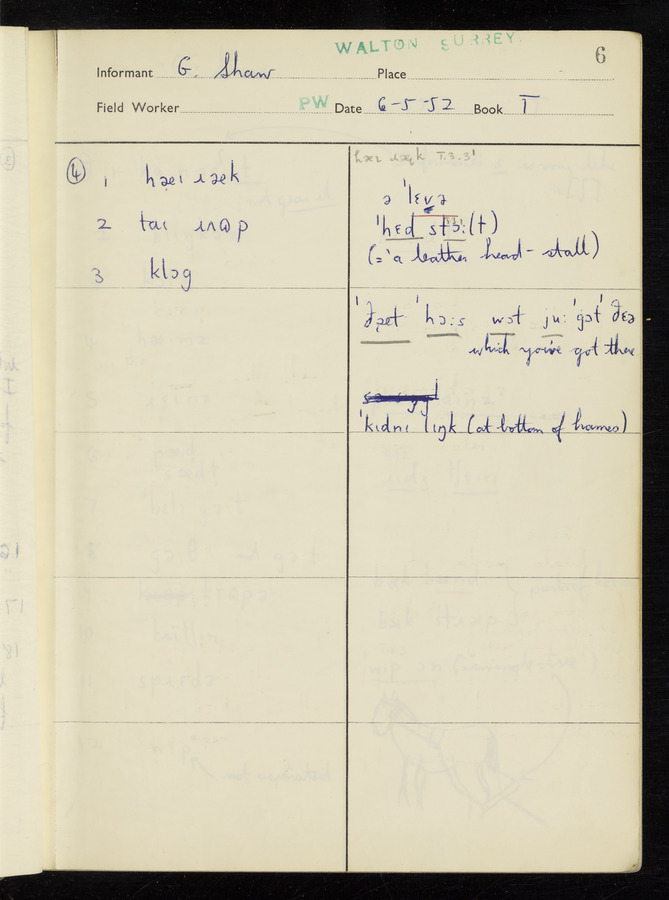 WALTON SURREY.
6
Informant G. Shaw Place
Field Worker PW Date 6-5-52 Book I
④ 1 hæɪ ɹæk
2 taɪ ɹɒp
3 klɔg
T.3.3'
ə 'lɛvə
'hɛd stɔ:(t)
(= a leather head-stall)
'ðæt 'hɔ:s wɒt ju: 'gɒt ðɛə
which you've got there
'kɪdnɪ lɪŋk (at bottom of hames)